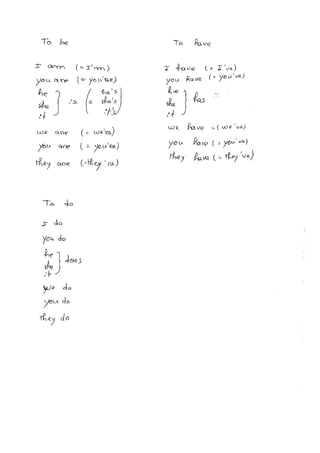 To be
I am (= I'm)
you are (= you're)
he
she } is (= he's she's it's)
it
we are (= we're)
you are (= you're)
they are (= they're)
To have
I have (= I've)
you have (= you've)
he
she } has
it
we have = (we've)
you have (= you've)
they have (= they've)
To do
I do
you do
he
she } does
it
we do
you do
they do